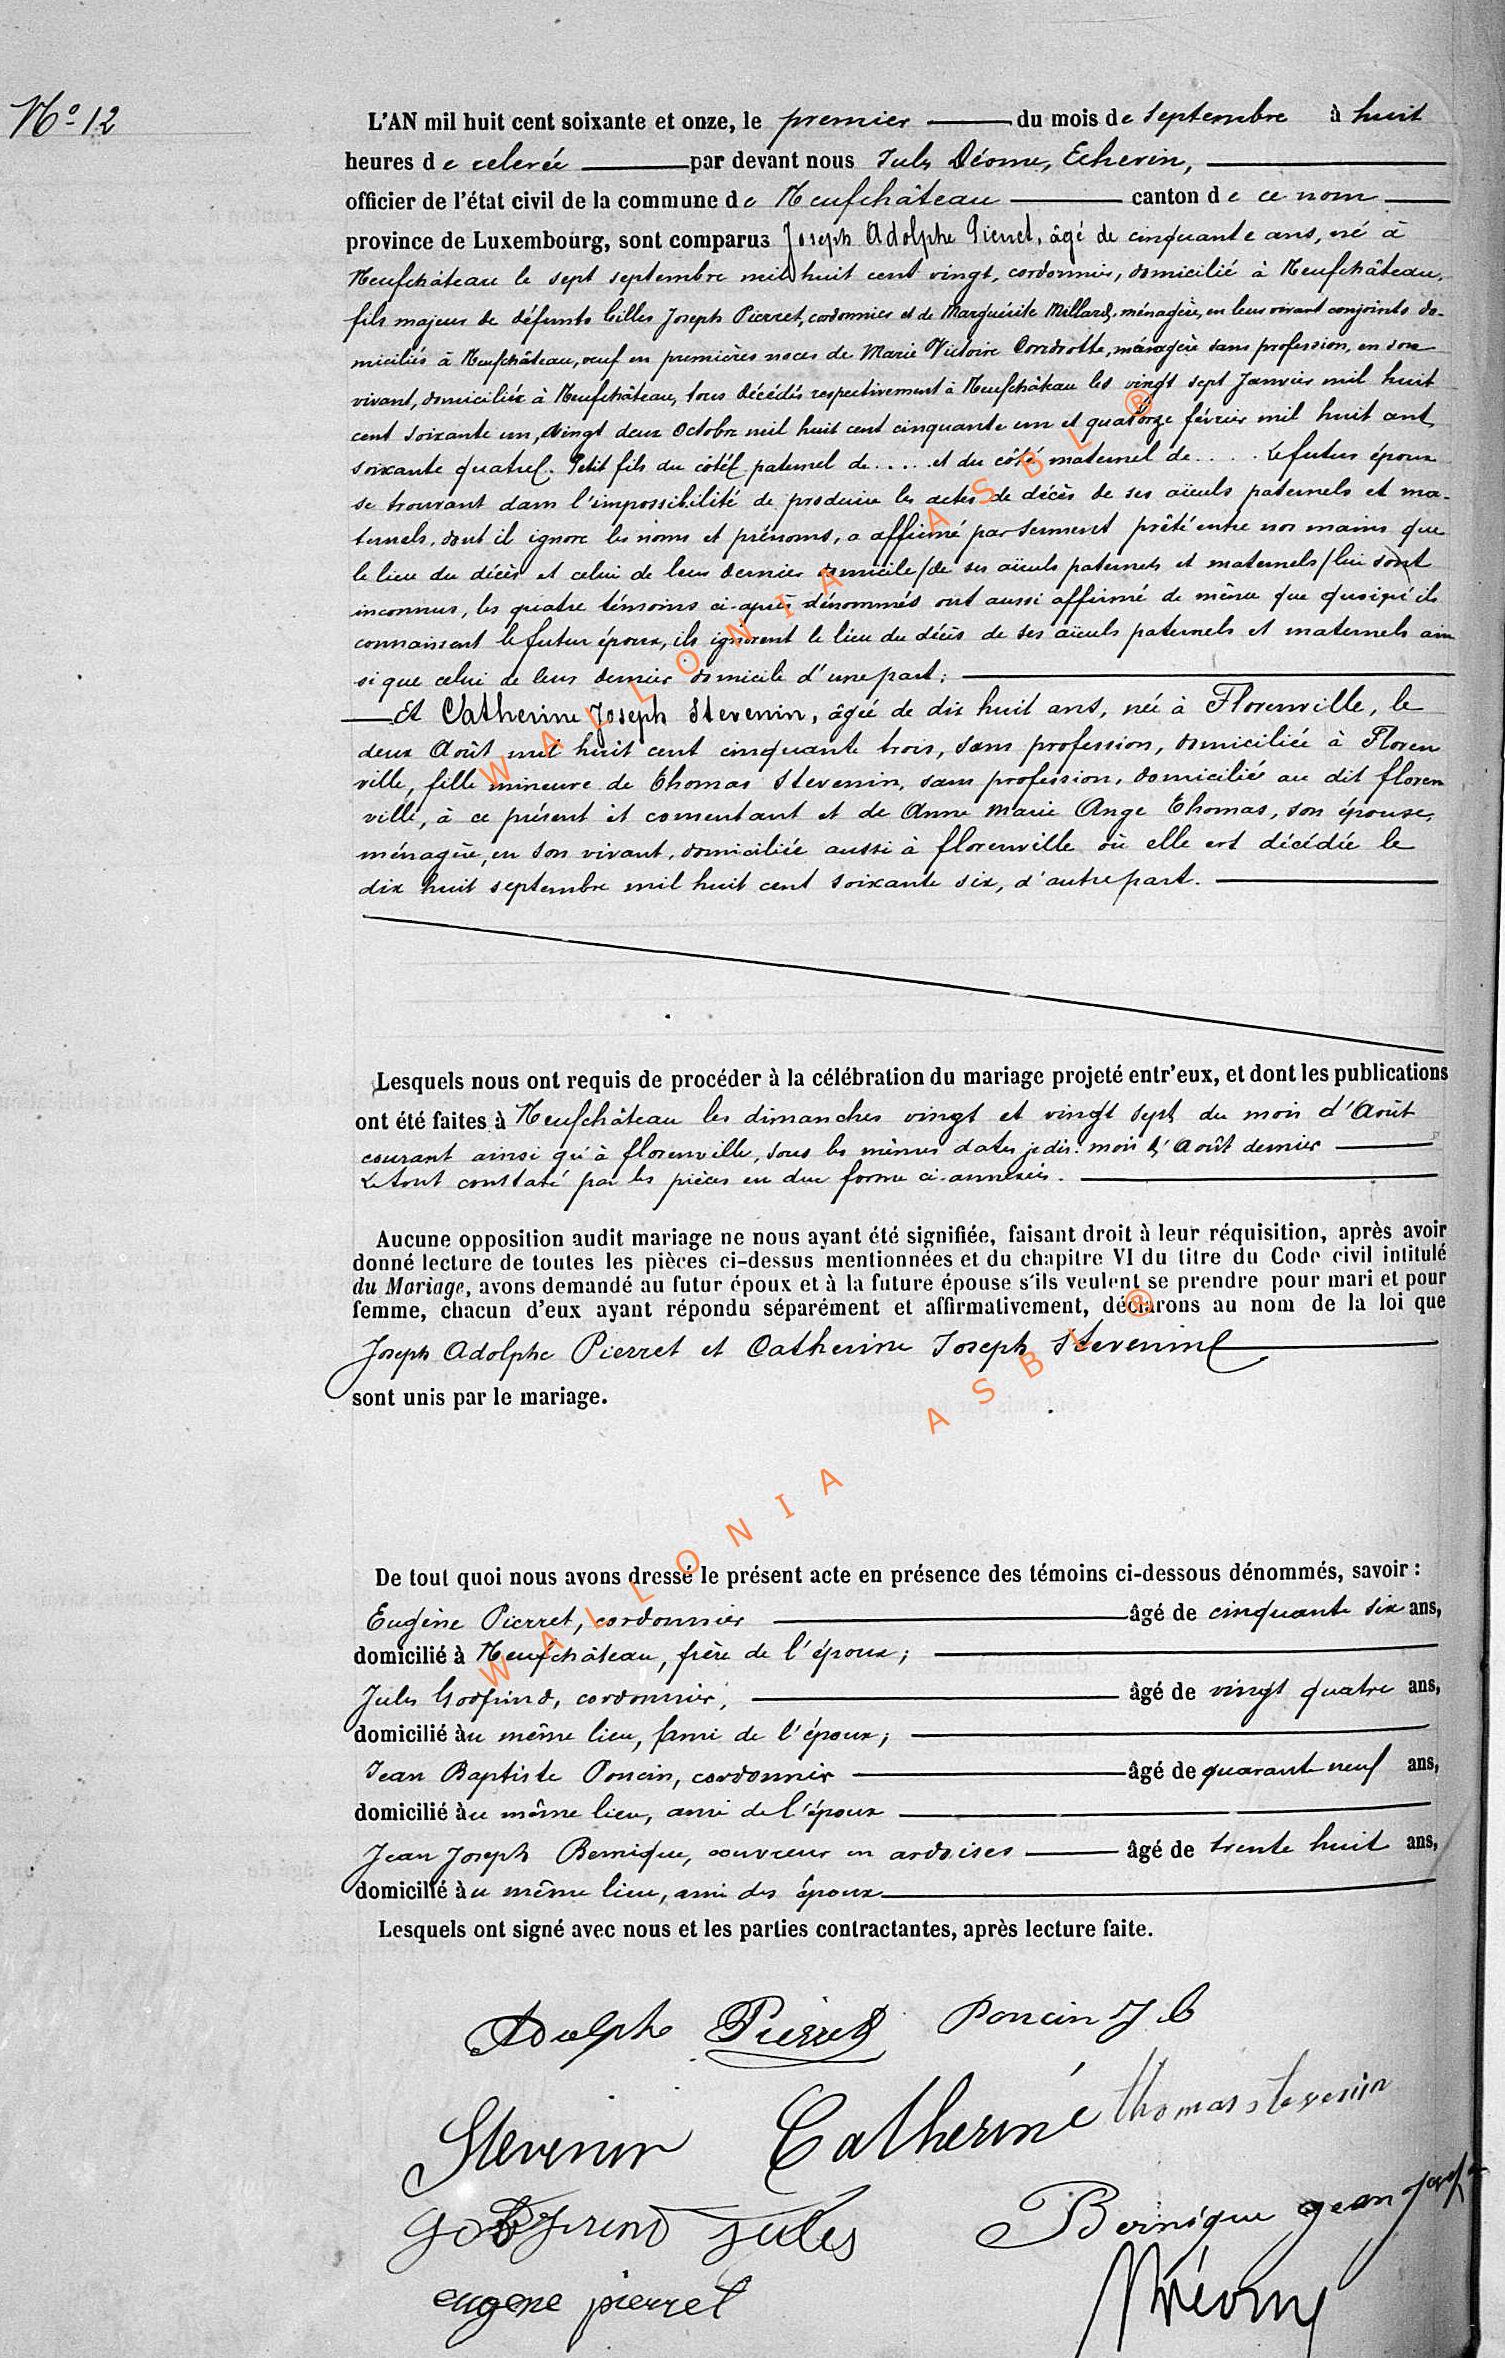 Nº 12
L'AN mil huit cent soixante et onze, le premier du mois de Septembre à huit
heures de relevée par devant nous Jules Déome, Echevin,
officier de l'état civil de la commune de Neufchâteau canton de ce nom
province de Luxembourg, sont comparus Joseph Adolphe Pierret, âgé de cinquante ans, né à
Neufchâteau le sept septembre mil huit cent vingt, cordonnier, domicilié à Neufchâteau,
fils majeur de défunts Gilles Joseph Pierret, cordonnier et de Marguérite Millard, ménagère, en leur vivant conjoints do-
miciliés à Neufchâteau, veuf en premières noces de Marie Victoire ménagère sans profession, en son
vivant, domiciliée à Neufchâteau, tous décédés respectivement à Neufchâteau les vingt sept Janvier mil huit
cent soixante un, vingt deux Octobre mil huit cent cinquante un et quatorze février mil huit cent
soixante quatre. Petit fils du côté paternel de ..... et du côté maternel de ..... Le futur époux
se trouvant dans l'impossibilité de produire les actes de décès de ses aïeuls paternels et ma-
ternels, dont il ignore les noms et prénoms, a affirmé par serment prêté entre nos mains que
le lieu du décès et celui de leur dernier domicile /de ses aïeuls paternels et maternels/ lui sont
inconnus, les quatre témoins ci-après dénommés ont aussi affirmé de même que quoiqu'ils
connaissent le futur époux, ils ignorent le lieu du décès de ses aïeuls paternels et maternels ain
si que celui de leur dernier domicile d'une part;
Et Catherine Joseph Stevenin, âgée de dix huit ans, née à Florenville, le
deux Août mil huit cent cinquante trois, sans profession, domiciliée à Floren
ville, fille mineure de Thomas Stevenin, sans profession, domicilié au dit floren
ville, à ce présent et consentant et de Anne Marie Ange Thomas, son épouse,
ménagère, en son vivant, domiciliée aussi à florenville où elle est décédée le
dix huit septembre mil huit cent soixante six, d'autre part.
Lesquels nous ont requis de procéder à la célébration du mariage projeté entr'eux, et dont les publications
ont été faites à Neufchâteau les dimanches vingt et vingt sept du mois d'Août
courant ainsi qu'à florenville, sous les mêmes dates je dis: mois d'Août dernier
Le tout constaté par les pièces en due forme ci-annexées.
Aucune opposition audit mariage ne nous ayant été signifiée, faisant droit à leur réquisition, après avoir
donné lecture de toutes les pièces ci-dessus mentionnées et du chapitre VI du titre du Code civil intitulé
du Mariage, avons demandé au futur époux et à la future épouse s'ils veulent se prendre pour mari et pour
femme, chacun d'eux ayant répondu séparément et affirmativement, déclarons au nom de la loi que
Joseph Adolphe Pierret et Catherine Joseph Stevenin
sont unis par le mariage.
De tout quoi nous avons dressé le présent acte en présence des témoins ci-dessous dénommés, savoir :
Eugène Pierret, cordonnier âgé de cinquante six ans,
domicilié à Neufchâteau, frère de l'époux;
Jules Godfrind, cordonnier, âgé de vingt quatre ans,
domicilié au même lieu, ami de l'époux;
Jean Baptiste Poncin, cordonnier âgé de quarante neuf ans,
domicilié au même lieu, ami de l'époux
Jean Joseph Bernique, couvreur en ardoises âgé de trente huit ans,
domicilié au même lieu, ami des époux
Lesquels ont signé avec nous et les parties contractantes, après lecture faite.
Adolphe Pierret Poncin J B
Stevenin Catherine thomas stevenin
godfrind jules Bernique jean joseph
eugene pierret JDéome
WALLONIA ASBL ®
WALLONIA ASBL ®